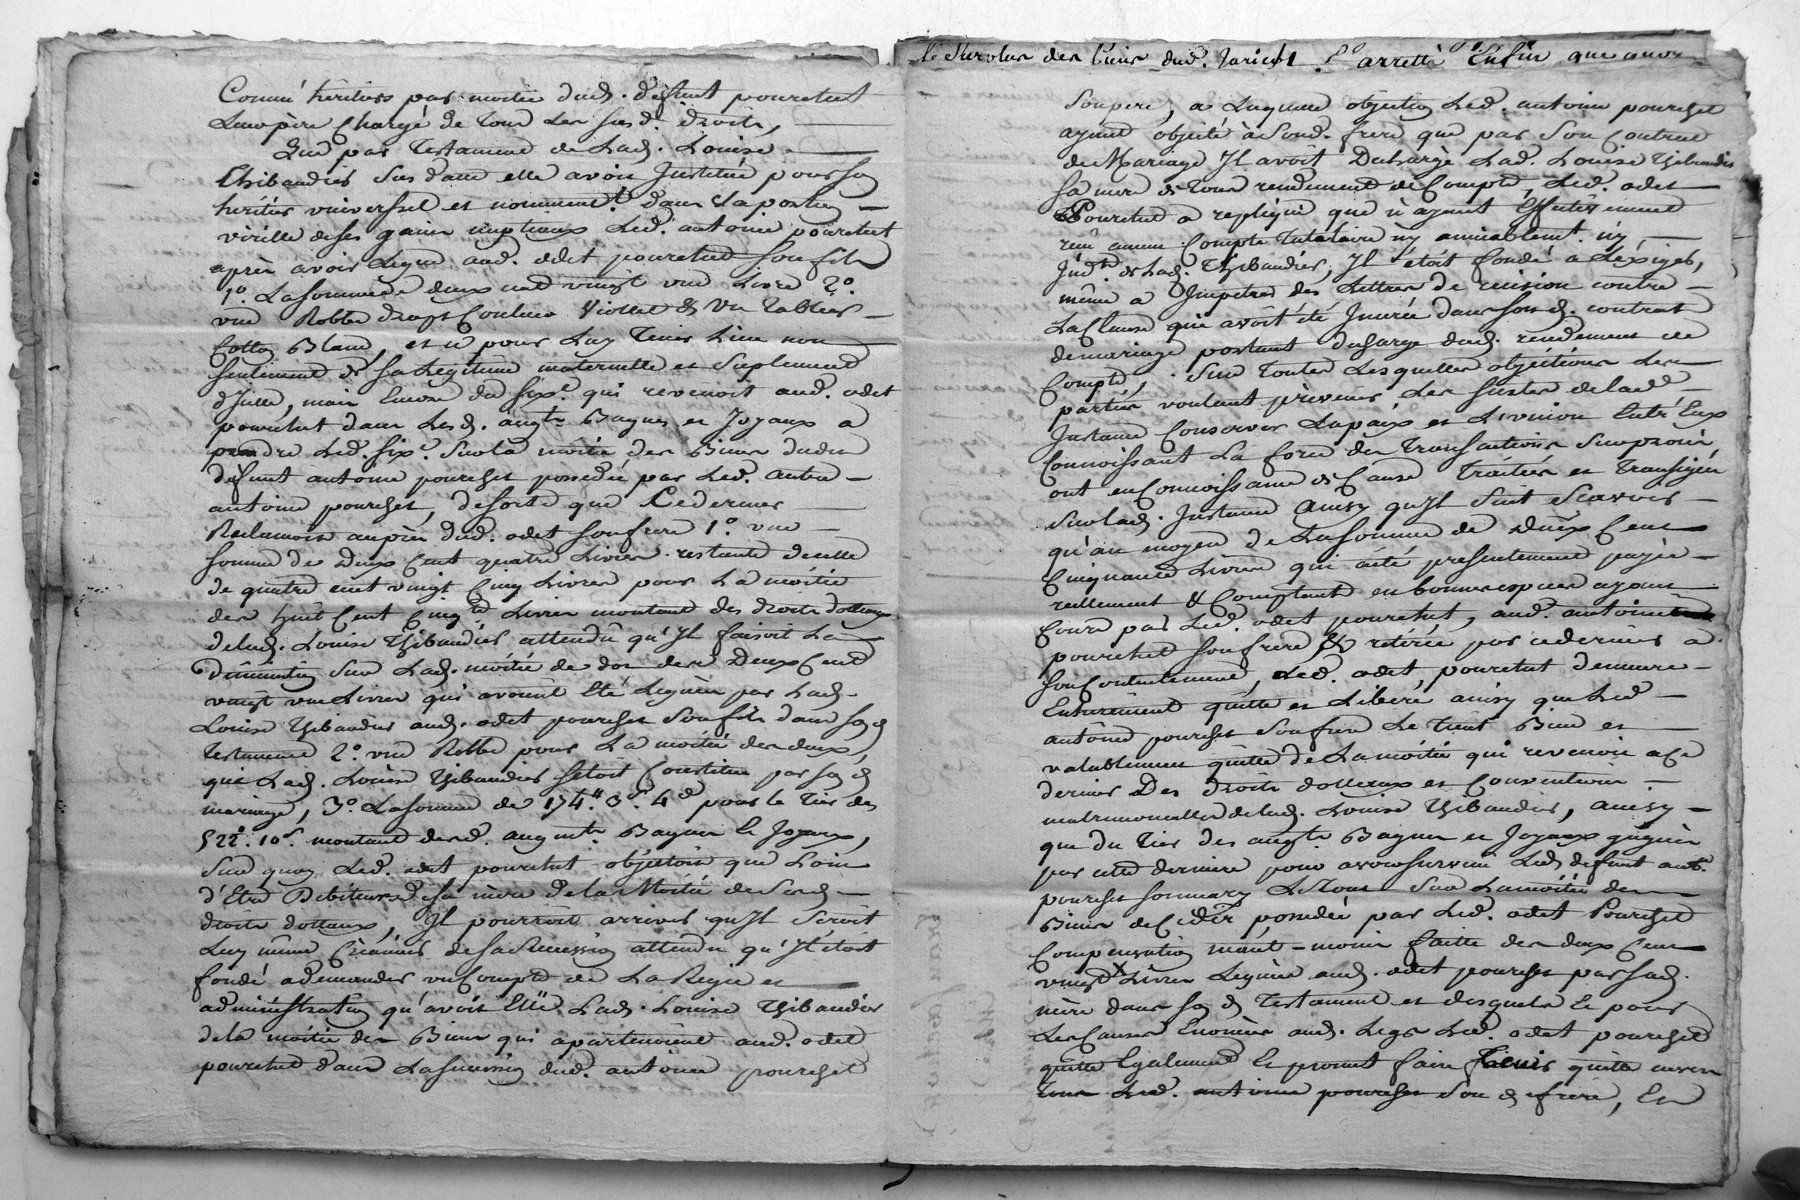 Comme heritiers par moitie dud. deffunt pourchet
Leur père Chargé de tous les susd. droits,
Que par Testament de Lad. Louise
Thibaudier sus d'atte elle avoit Justitué pour son
heritier vniverssel et nommemt. dans la portion
virille de ses gains nuptiaux Led. antoine pourchet
après avoir Legué aud. odet pourchet son fils
1º. La somme de deux cent vingt vne Livre 2º.
vne Robbe drapt Couleur Viollet & Vn Tablier
Cotton Blanc, et ce pour Luy Tenir Lieu non
seulement de sa Legitime maternelle et Suplement
d'Icelle, mais Encore du six.e qui revenoit aud. odet
pourchet dans Lesd. augts. Bagues et Joyaux a
prendre Led. six.e Sur la moitié des Biens dudit
deffunt antoine pourchet possedée par Led. autre
antoine pourchet, de sorte que Ce dernier
Reclamoit auprès dud. odet son frere 1º. vne
somme de Deux Cent quatre Livres restante de celle
de quatre cent vingt Cinq Livres pour La moitié
des huit Cent Cinqte. Livres montant des droits dotteaux
de lad. Louise Thibaudier attendu qu'Il faisoit La
Diminution Sur Lad. moitié de dot des Deux Cent
vingt vne Livres qui avoient Eté Leguées par Lad.
Louise Thibaudier aud. odet pourchet Son fils dans Son d.
Testament 2º. vne Robbe pour La moitié des deux,
que Lad. Louise Thibaudier setoit Constitué par Son d.
mariage, 3º. La somme de 174# 3s. 4d. pour le Tier des
522#. 10s. montant desd. augmts. Bagues & Joyaux,
Sur quoy Led. odet pourchet objectoit que Loin
d'Etre Debiteur de sa mère de la Moitié de Sesd.
droits dottaux, Il pourroit arriver qu'Il Seroit
Luy même Créancier de sa Succession attendu qu'Il étoit
fondé a demander vn Compte de La Regie et
administration qu'avoit Ette Lad. Louise Thibaudier
de la moitié des Biens qui apartenoient aud. odet
pourchet dans La Succession dud. antoine pourchet
le Surplus des biens dud. arretté Enfin que
Son pere, a Laquelle objection Led. antoine pourchet
ayant objecté à Sond. frere que par Son Contrat
de Mariage Il avoit Déchargé Lad. Louise Thibaudier
Sa mere de tout rendement de Compte, Led. odet
Pourchet a repliqué que n'ayant Effectivement
reçu aucun Compte Tutelaire ny amiablemt. ny
Judt. de Lad. Thibaudier, Il étoit fondé à L'exiger,
même a Impetrer des Lettres de recision contre
La Clause qui avoit été Inserée dans Son d. contrat
de mariage portant décharge dud. rendement de
Compte, Sur Toutes Lesquelles objections Les
parties voulant prévenir Les Suites de lade.
Instance Conserver La paix et L'vnion Entr'Eux
Connoissant La force des Transactions
ont en Connoissance de Cause Traitées et Transigées
Sur lad. Instance ainsy qu'Il Suit Scavoir
qu'au moyen de La somme de Deux Cent
Cinquante Livres qui a été presentement payée
reellement & Comptant en bonnes especes ayant
Cours par Led. odet pourchet, aud. antoine
pourchet son frere & retirée par ce dernier a
son Contentement, Led. odet, pourchet demeure
Entierement quitte et Libere ainsy que Led.
antoine pourchet Son frere Le Tient Bien et
valablement quitte de La moitié qui revenoit a Ce
dernier Des droits dotteaux et Conventions
matrimonialles de lad. Louise Thibaudier, ainsy
que du Tier des augts. Bagues et Joyaux gagnés
par cette derniere pour avoir survecu Led. defunt ante.
pourchet son mary Le Tout Sur La moitié des
Biens de Ce dr. possedée par Led. odet Pourchet
Compensation moins faitte des deux Cent
vingt Livres Leguées aud. odet pourchet par Sad.
mère dans Son d. Testament et desquels & pour
Les Causes Enoncées aud. Legs Led. odet pourchet
quitte Egalement & promet faire Tenir quitte envers
Tous Led. antoine pourchet Son d. frere, En